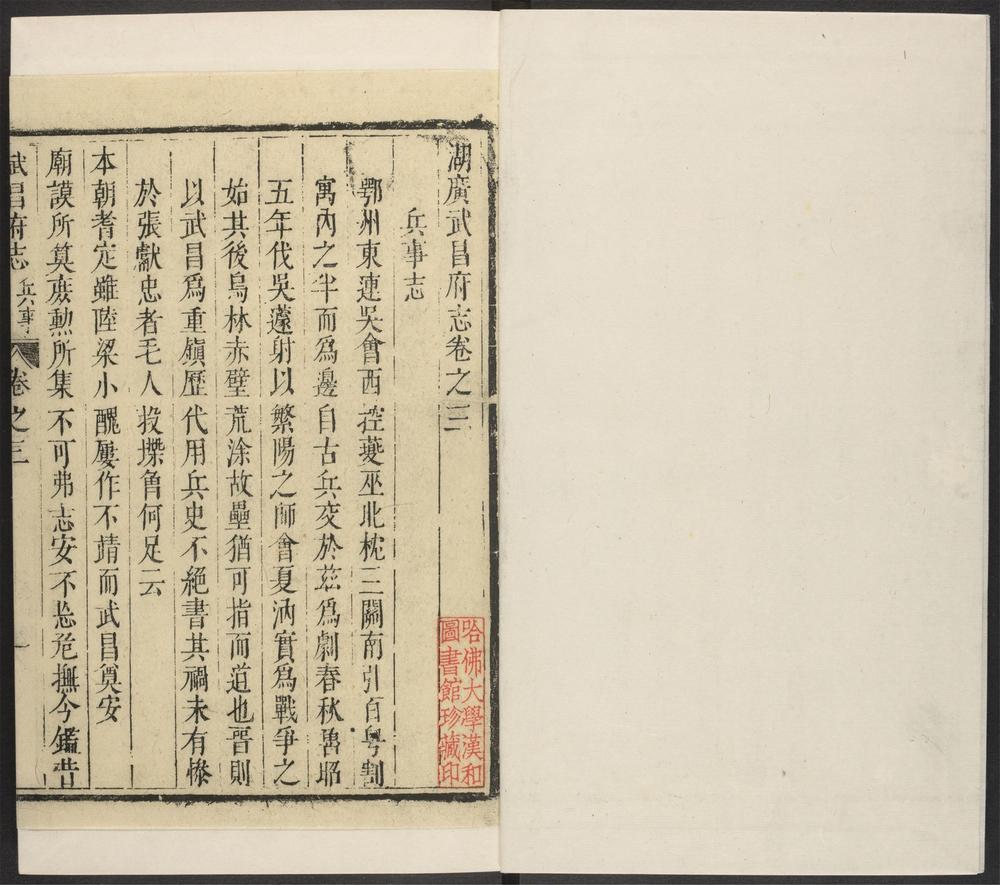 湖廣武昌府志卷之三
兵事志
鄂州東連吳會西控夔巫北枕三關南引百粤割
寓內之半而爲邊自古兵交於茲爲劇春秋魯昭
五年伐吳薳射以繁陽之師會夏汭實爲戰爭之
始其後烏林赤壁荒涂故壘猶可指而道也晋則
以武昌爲重鎭歷代用兵史不絕書其禍未有慘
於張獻忠者毛人投㙮魯何足云
本朝耆定雖陸梁小醜屢作不靖而武昌奠安
廟謨所奠庶勲所集不可弗志安不忘危撫今鑑昔
武昌府志 兵事 卷之三 一
哈佛大學漢和
圖書館珍藏印